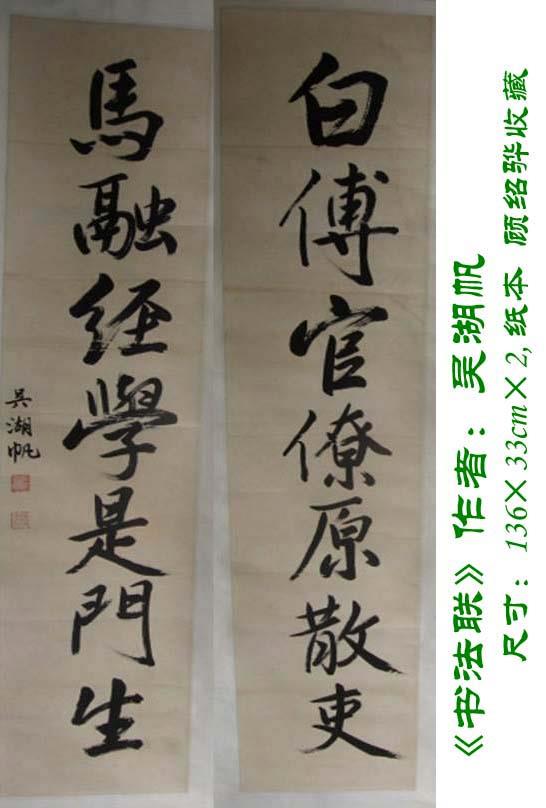 白傅官僚原散吏
馬融经學是門生
吴湖帆
《书法联》作者：吴湖帆
尺寸：136×33cm×2,纸本 顾绍骅收藏